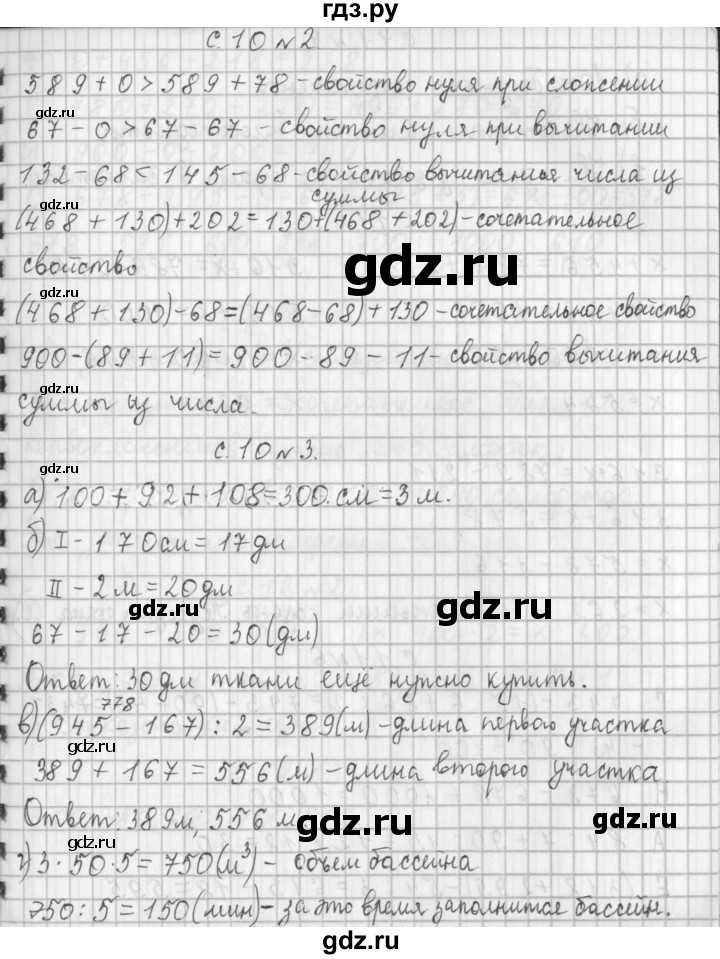 гдз.ру
с. 10 № 2
589 + 0 > 589 + 78 - свойство нуля при сложении
gdz.ru
67 - 0 > 67 - 67 - свойство нуля при вычитании
132 - 68 < 145 - 68 - свойство вычитания числа из
gdz.ru
суммы
(468 + 130) + 202 = 130 + (468 + 202) - сочетательное
свойство
gdz.ru
gdz.ru
(468 + 130) - 68 = (468 - 68) + 130 - сочетательное свойство
900 - (89 + 11) = 900 - 89 - 11 - свойство вычитания
gdz.ru
суммы из числа.
с. 10 № 3.
gdz.ru
а) 100 + 92 + 108 = 300 см = 3 м.
б) I - 170 см = 17 дм
gdz.ru
II - 2 м = 20 дм
gdz.ru
67 - 17 - 20 = 30 (дм)
gdz.ru
Ответ: 30 дм ткани ещё нужно купить.
778
в) (945 - 167) : 2 = 389 (м) - длина первого участка
gdz.ru
389 + 167 = 556 (м) - длина второго участка.
Ответ: 389 м; 556 м
gdz.ru
gdz.ru
г) 3 · 50 · 5 = 750 (м³) - объем бассейна
750 : 5 = 150 (мин) - за это время заполнится бассейн.
gdz.ru
gdz.ru